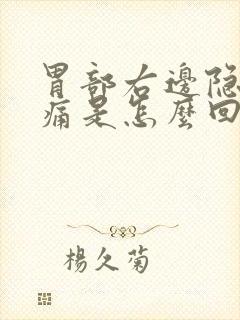 胃部右邊隐
痛是怎麽回
楊久菊